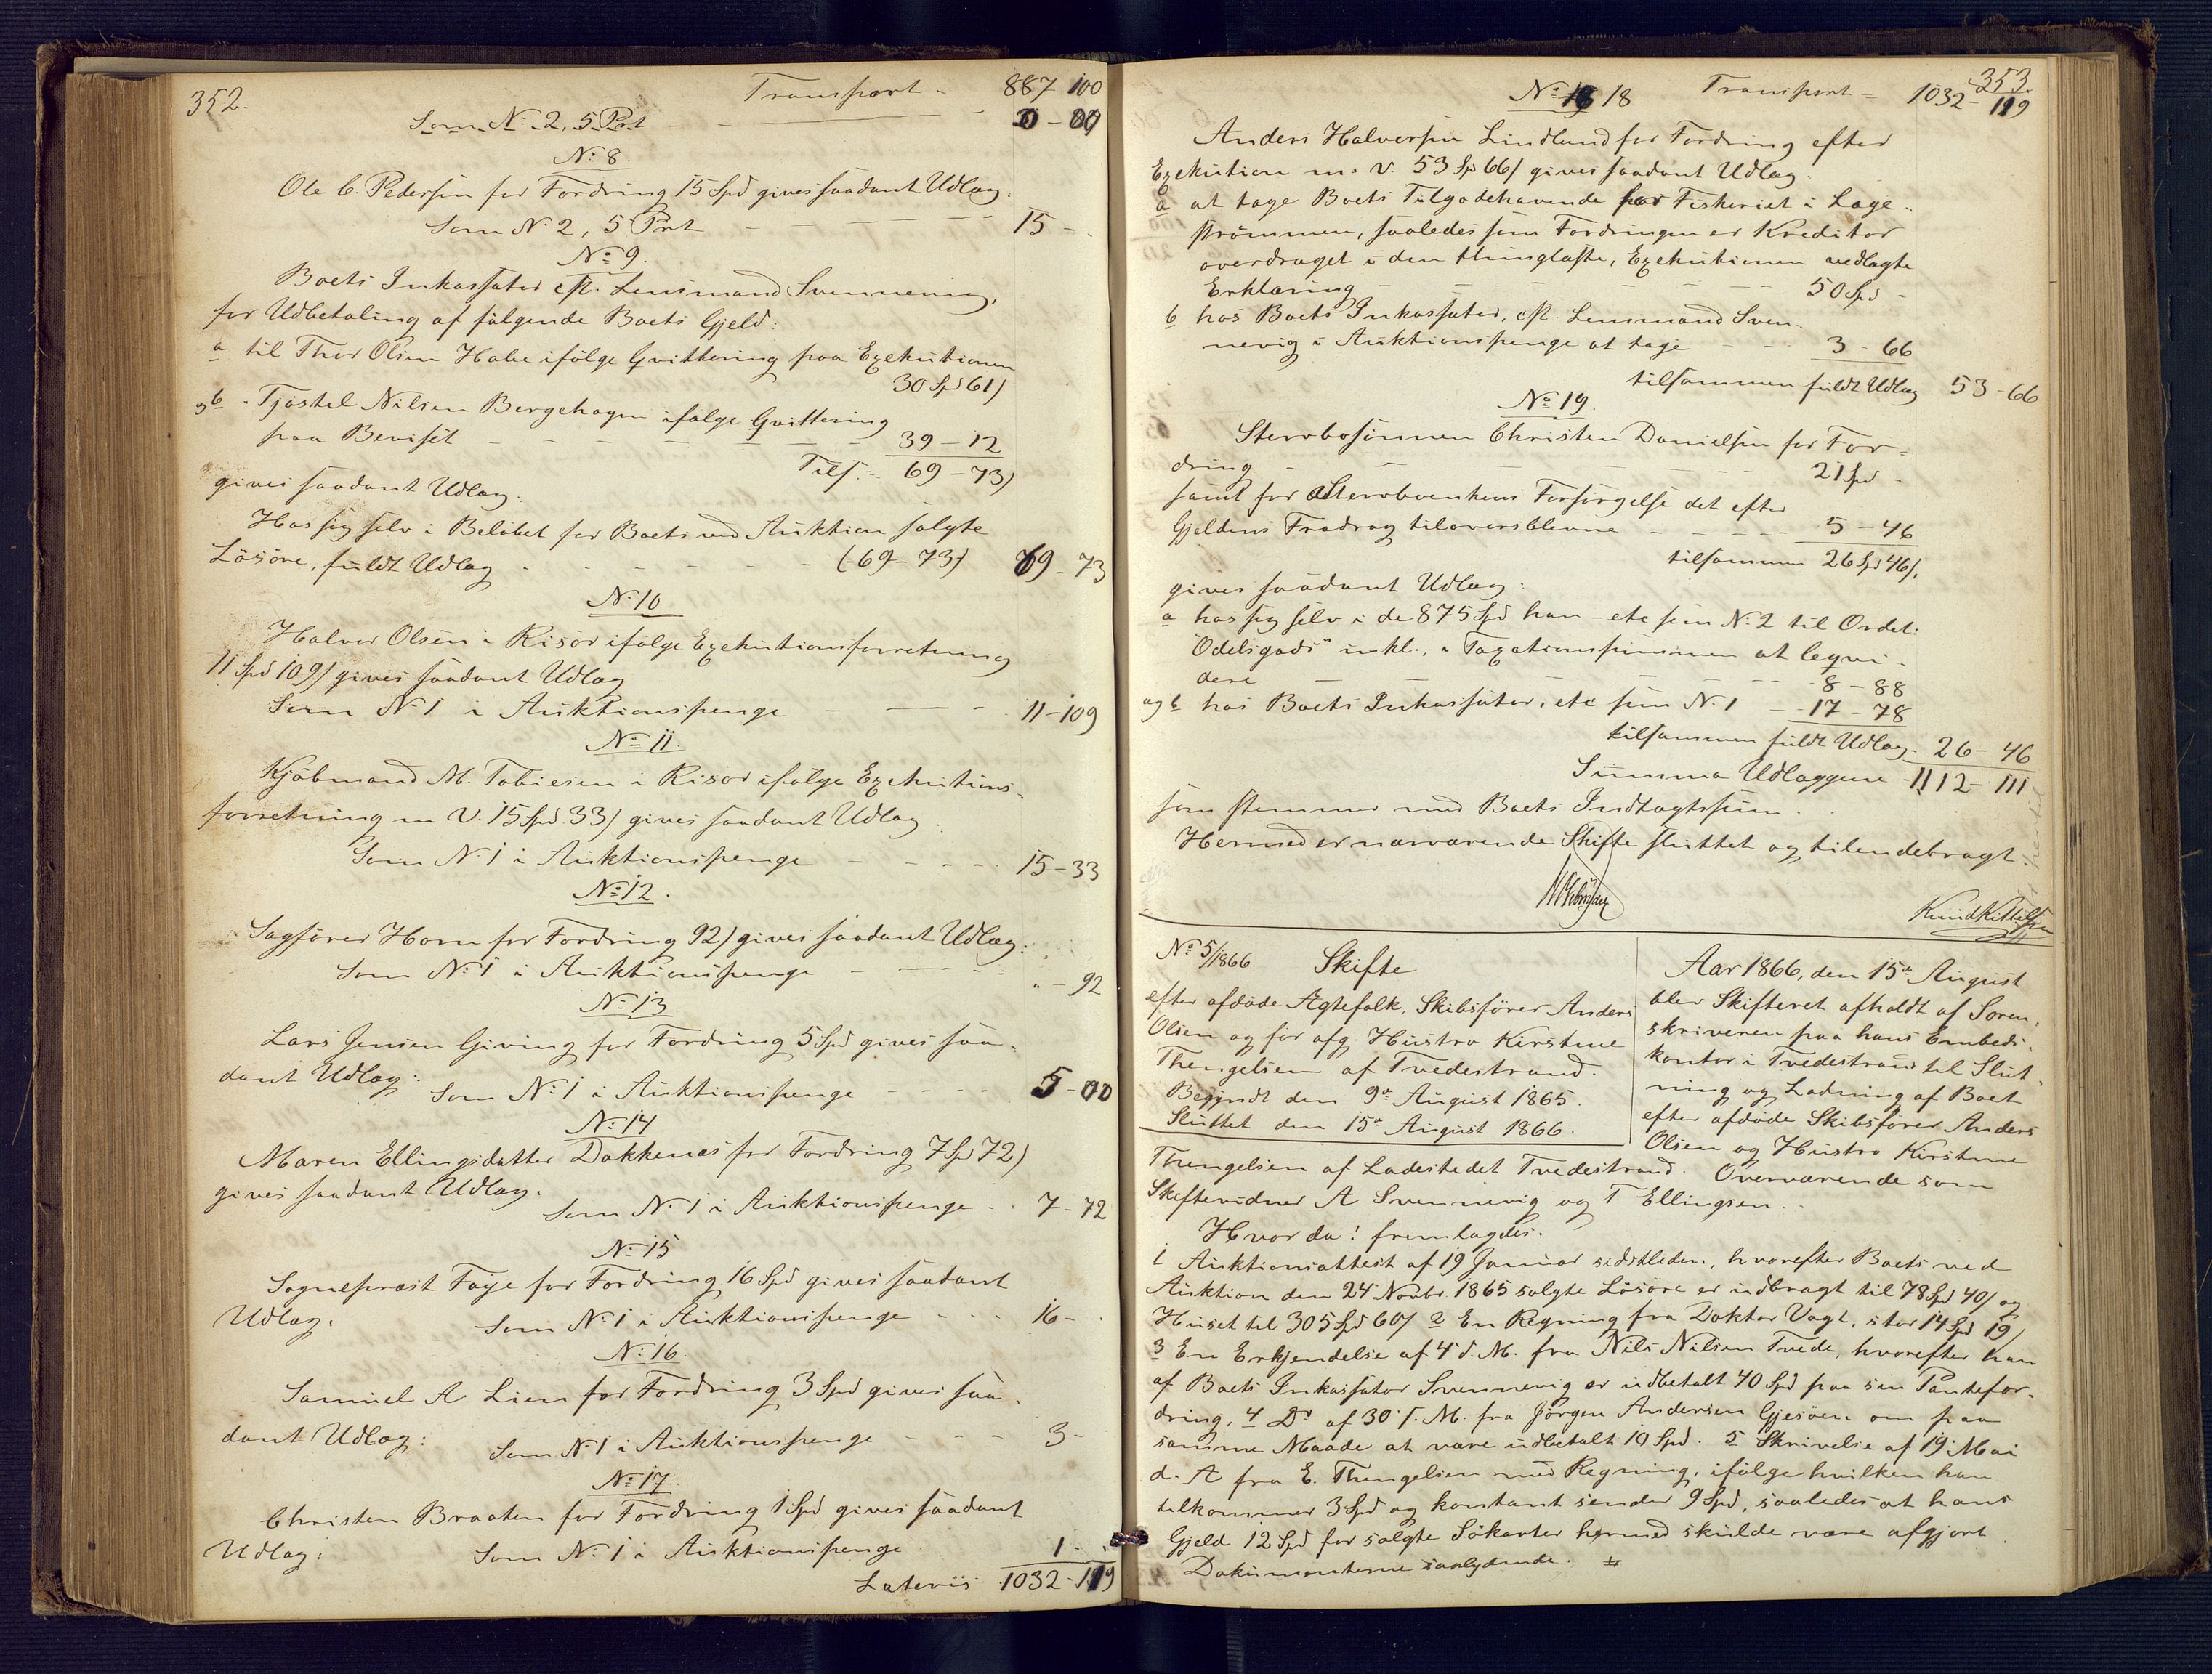 352.
Transport - 887 100
Som N. 2, 5 Pst - - 0 - 00
No 8.
Ole C. Pedersen for Fordring 15 Spd gives saadant Udlæg:
Som No 2, 5 Pst - - - 15 -
No 9.
Boets Inkassator cst. Lensmand Svennevig,
for Udbetaling af følgende Boets Gjeld:
a til Thor Olsen Habe ifølge Qvittering paa Exekutionen
30 Spd 61 ſ
og b. Tjöstel Nilsen Bergehagen ifølge Qvittering
paa Beviset - - - 39 - 12
Tils. 69 - 73 ſ
gives saadant Udlæg:
Hos sig selv i Belöbet for Boets ved Auktion solgte
Lösöre, fuldt Udlæg - - - (69 - 73 ſ) 69 - 73
No 10
Halvor Olsen i Risör ifølge Exekutionsforretning
11 Spd 109 ſ gives saadant Udlæg
Som No 1 i Auktionspenge - - - 11 - 109
No 11.
Kjöbmand M. Tobiesen i Risör ifølge Exekutions-
forretning m. V. 15 Spd. 33 ſ gives saadant Udlæg:
Som No 1 i Auktionspenge - - - 15 - 33
No 12.
Sagförer Horn for Fordring 92 ſ gives saadant Udlæg:
Som No 1 i Auktionspenge - - - " - 92
No 13
Lars Jensen Giving for Fordring 5 Spd gives saa-
dant Udlæg:
Som No 1 i Auktionspenge - - - 5 - 00
No 14
Maren Ellingsdatter Dakkenæs for Fordring 7 Spd 72 ſ
gives saadant Udlæg.
Som No 1 i Auktionspenge - - 7 - 72
No 15
Sognepræst Faye for Fordring 16 Spd gives saadant
Udlæg:
Som No 1 i Auktionspenge - - - 16 -
No 16.
Samuel A Lien for Fordring 3 Spd gives saa-
dant Udlæg:
Som No 1 i Auktionspenge - - - 3 -
No 17.
Christen Braaten for Fordring 1 Spd gives saadant
Udlæg:
Som No 1 i Auktionspenge 1 -
Lateris 1032 - 119
353.
No 18 Transport - 1032 - 119
Anders Halversen Lindland for Fordring efter
Exekution m. V. 53 Sp 66 ſ gives saadant Udlæg:
a at tage Boets Tilgodehavende for Fiskeriet i Lage-
strömmen, saaledes som Fordringen er Kreditor
overdraget i den thinglæste, Exekutionen vedlagte
Erklæring - - - 50 Spd -
b hos Boets Inkassator, cst. Lensmand Sven-
nevig i Auktionspenge at tage - - 3 - 66
tilsammen fuldt Udlæg 53 - 66
No 19.
Stervbosönnen Christen Danielsen for For-
dring - - - 21 Spd -
samt for Stervboenkens Forsörgelse det efter
Gjeldens Fradrag tiloversblevne - - - 5 - 46
tilsammen 26 Spd 46 ſ.
gives saadant Udlæg:
a hos sig selv i de 875 Spd han - etc som No 2 til Ordet:
"Odelsgods" inkl., i Taxationssummen at leqvi-
dere - - - 8 - 88
og b hos Boets Inkassator, etc som No 1 - - 17 - 78
tilsammen fuldt Udlæg - 26 - 46
Summa Udlæggene 1112 - 111
som stemmer med Boets Indtægtssum.
Hermed er nærværende Skifte sluttet og tilendebragt.
Knud Kittelsen
No 5/1866. Skifte
efter afdøde Ægtefolk, Skibsförer Anders
Olsen og for afg. Hustro Kirstine
Thengelsen af Tvedestrand.
Begyndt den 9de August 1865.
Sluttet den 15de August 1866.
Aar 1866, den 15de August
blev Skifteret afholdt af Soren-
skriveren paa hans Embeds-
kontor i Tvedestrand til Slut-
ning og Lodning af Boet
efter afdöde Skibsförer Anders
Olsen og Hustro Kirstine
Thengelsen af Ladestedet Tvedestrand. Overværende som
Skiftevidner A Svennevig og T. Ellingsen.
Hvor da! fremlagdes:
1 Auktionsattest af 19 Januar sidstleden, hvorefter Boets ved
Auktion den 24 Novbr. 1865 solgte Lösöre er udbragt til 78 Spd 40 ſ og
Huset til 305 Spd 60 ſ 2 En Regning fra Doktor Vogt, stor 14 Spd 19 ſ
3 En Erkjendelse af 4 d. M. fra Nils Nilsen Tvede, hvorefter han
af Boets Inkassator Svennevig er udbetalt 40 Spd paa sin Pantefor-
dring, 4 Do af 30 f. M. fra Jörgen Andersen Gjesöen om paa
samme Maade at være udbetalt 10 Spd. 5 Skrivelse af 19 Mai
d. A fra E. Thengelsen med Regning, ifölge hvilken han
tilkommer 3 Spd og kontant sender 9 Spd, saaledes at hans
Gjeld 12 Spd for solgte Sökarter hermed skulde være afgjort
Dokumenterne saalydende. #